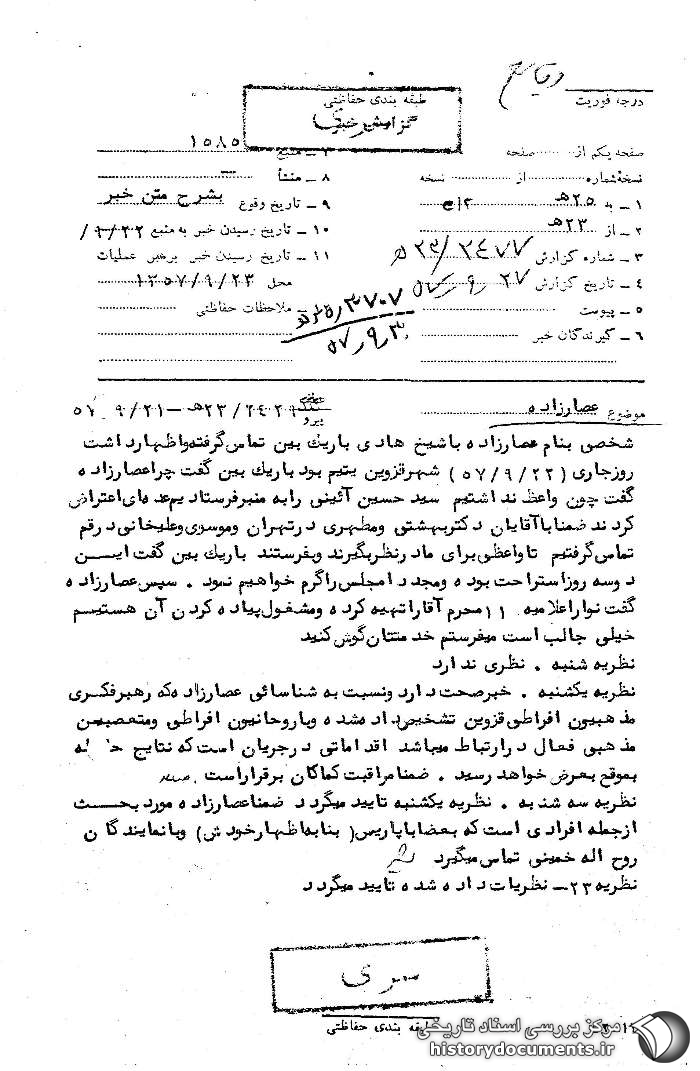 وقایع
درجه فوریت
طبقه بندی حفاظتی
گزارش خبری
صفحه یکم از صفحه
نسخه شماره از نسخه
۱ ـ به ۲۵ هـ
۲ ـ از ۲۳ هـ
۳ ـ شماره گزارش ۲۴۷۷ / ۲۳ هـ
۴ ـ تاریخ گزارش ۲۷ / ۹ / ۵۷
۵ ـ پیوست
۶ ـ گیرندگان خبر
۷ ـ منبع ۱۵۸۵
۸ ـ منشأ
۹ ـ تاریخ وقوع بشرح متن خبر
۱۰ ـ تاریخ رسیدن خبر به منبع ۲۲ / ۹ /
۱۱ ـ تاریخ رسیدن خبر برهبر عملیات
محل ۲۳ / ۹ / ۱۳۵۷
ملاحظات حفاظتی
۳۷۰۷
۵۷ / ۹ / ۳۰
موضوع عصارزاده
پیرو ۲۴۲۹ / ۲۳ هـ – ۲۱ / ۹ / ۵۷
شخصی بنام عصارزاده باشیخ هادی باریك بین تماس گرفته واظهارداشت
روزجاری (۵۷/۹/۲۲) شهرقزوین یتیم بود باریك بین گفت چرا عصارزاده
گفت چون واعظ نداشتیم سید حسین آئینی رابه منبرفرستادیم عده ای اعتراض
کردند ضمنا باآقایان دکتربهشتی ومطهری درتهران وموسوی وعلیخانی درقم
تماس گرفتیم تا واعظی برای مادرنظربگیرند وبفرستند باریك بین گفت ایسن
دوسه روزاستراحت بوده ومجددا مجلس راگرم خواهیم نمود . سپس عصارزاده
گفت نواراعلامیه ۱۱ محرم آقاراتهیه کرده ومشغول پیاده کردن آن هستیسم
خیلی جالب است میفرستم خدمتتان گوش کنید
نظریه شنبه . نظری ندارد
نظریه یکشنبه . خبرصحت دارد ونسبت به شناسائی عصارزاده که رهبرفکـری
مذهبیون افراطی قزوین تشخیص داده شده وباروحانیون افراطی ومتعصبیـن
مذهبی فعال درارتباط میباشد اقداماتی درجریان است که نتایج حاصله
بموقع بعرض خواهد رسید . ضمنا مراقبت کماکان برقراراست .
نظریه سه شنبه . نظریه یکشنبه تایید میگردد ضمنا عصارزاده مورد بحـث
ازجمله افرادی است که بعضا باپاریس (بنابه اظهارخودش) وبانمایندگان
روح اله خمینی تماس میگیرد
نظریه ۲۳ – نظریات داده شده تایید میگردد
سری
طبقه بندی حفاظتی
مرکز بررسی اسناد تاریخی
historydocuments.ir